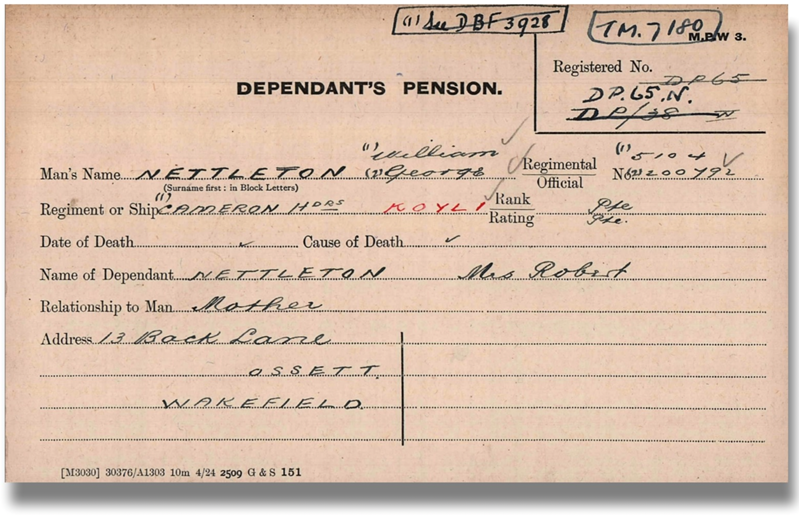 (1) See DBF 3928
TM. 7180
M.P.W 3.
DEPENDANT'S PENSION.
Registered No. DP65
DP.65.N.
DP/38 N
(1) William
(1) 5104
Man's Name NETTLETON (2) George Regimental Official No. (2) 200792
(Surname first: in Block Letters)
Regiment or Ship (1) CAMERON HDRS KOYLI Rank Rating Pte
Pte.
Date of Death Cause of Death
Name of Dependant NETTLETON Mrs Robert
Relationship to Man Mother
Address 13 Back Lane
OSSETT.
WAKEFIELD.
[M3030] 30376/A1303 10m 4/24 2509 G & S 151